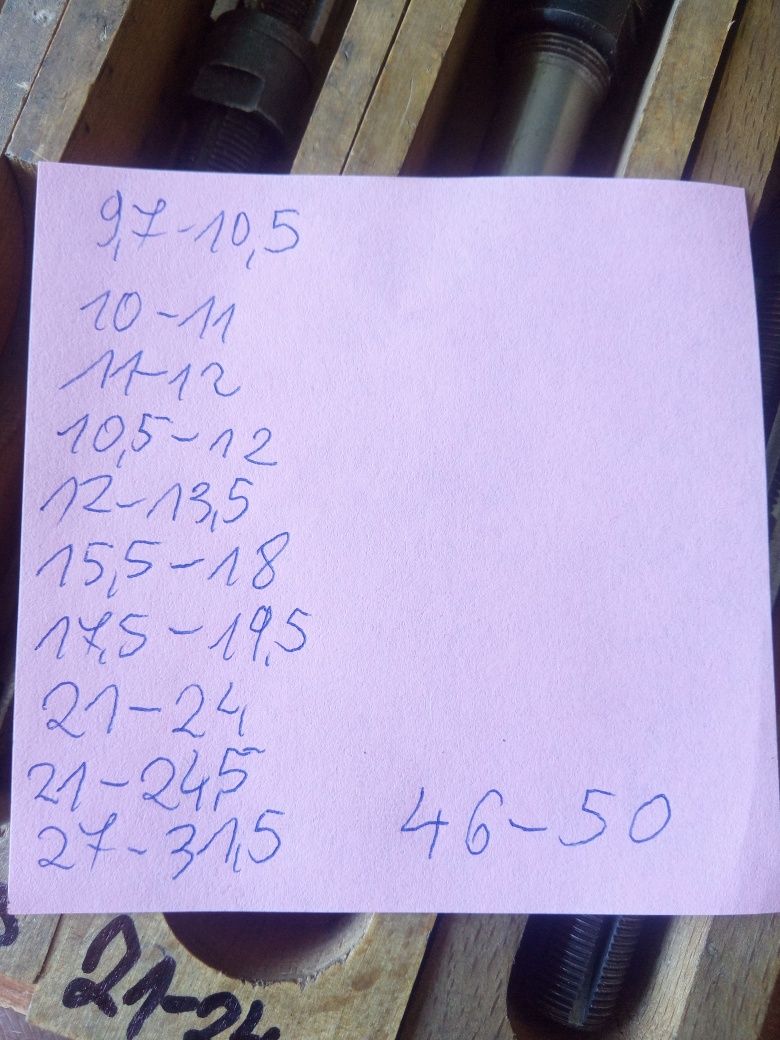 9,7-10,5
10-11
11-12
10,5-12
12-13,5
15,5-18
17,5-19,5
21-24
21-24,5
27-31,5
46-50
21-24